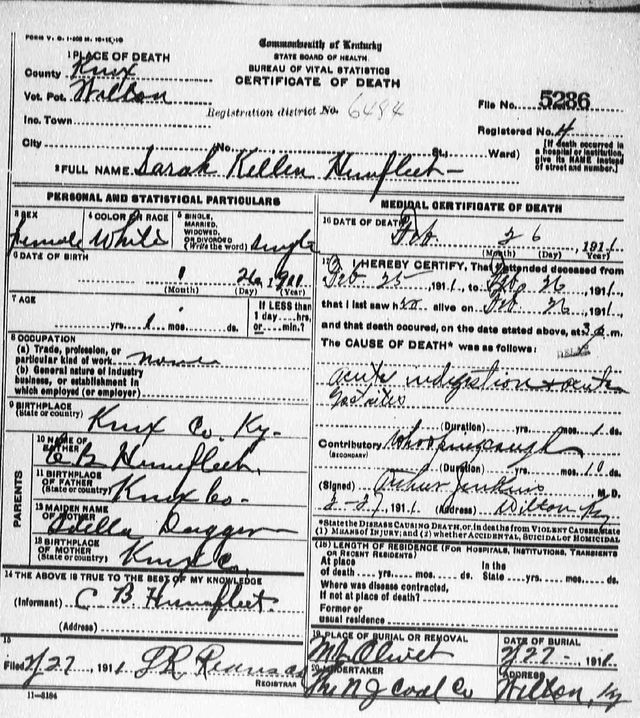 FORM V. S. 1-
Commonwealth of Kentucky
STATE BOARD OF HEALTH
BUREAU OF VITAL STATISTICS
CERTIFICATE OF DEATH
1 PLACE OF DEATH
County Knox
Vot. Pct. Wilton
Inc. Town
City
Registration district No. 6484
File No. 5286
Registered No. 4
(No. St., Ward)
[If death occurred in a hospital or institution, give its NAME instead of street and number.]
2 FULL NAME Sarah Kellen Humfleet
PERSONAL AND STATISTICAL PARTICULARS
3 SEX Female
4 COLOR OR RACE White
5 SINGLE, MARRIED, WIDOWED, OR DIVORCED (Write the word) Single
6 DATE OF BIRTH
1 26, 1911
(Month) (Day) (Year)
7 AGE
yrs. 1 mos. ds.
If LESS than 1 day....hrs. or....min.?
8 OCCUPATION
(a) Trade, profession, or particular kind of work None
(b) General nature of industry business, or establishment in which employed (or employer)
9 BIRTHPLACE (State or country) Knox Co. Ky.
PARENTS
10 NAME OF FATHER C B Humfleet
11 BIRTHPLACE OF FATHER (State or country) Knox Co.
12 MAIDEN NAME OF MOTHER Della Dugger
13 BIRTHPLACE OF MOTHER (State or country) Knox Co.
14 THE ABOVE IS TRUE TO THE BEST OF MY KNOWLEDGE
(Informant) C B Humfleet.
(Address)
15
Filed 2/27, 1911
REGISTRAR
11-3184
MEDICAL CERTIFICATE OF DEATH
16 DATE OF DEATH
Feb 26, 1911
(Month) (Day) (Year)
17 I HEREBY CERTIFY, That I attended deceased from
Feb 25, 1911, to Feb 26, 1911,
that I last saw alive on Feb 26, 1911,
and that death occurred, on the date stated above, at m.
The CAUSE OF DEATH* was as follows:
acute indigestion + acute
Gastritis
(Duration) yrs. mos. 1 ds.
Contributory Whooping cough
(SECONDARY)
(Duration) yrs. mos. 10 ds.
(Signed) Arthur Jenkins M. D.
2-27, 1911 (Address) Wilton Ky
*State the DISEASE CAUSING DEATH, or, in deaths from VIOLENT CAUSES, state (1) MEANS OF INJURY; and (2) whether ACCIDENTAL, SUICIDAL or HOMICIDAL
(18) LENGTH OF RESIDENCE (FOR HOSPITALS, INSTITUTIONS, TRANSIENTS OR RECENT RESIDENTS)
At place of death yrs. mos. ds. In the State yrs. mos. ds.
Where was disease contracted,
If not at place of death?
Former or
usual residence
19 PLACE OF BURIAL OR REMOVAL Mt Olivet
DATE OF BURIAL 2/27 1911
20 UNDERTAKER The N J Coal Co
ADDRESS Wilton, Ky